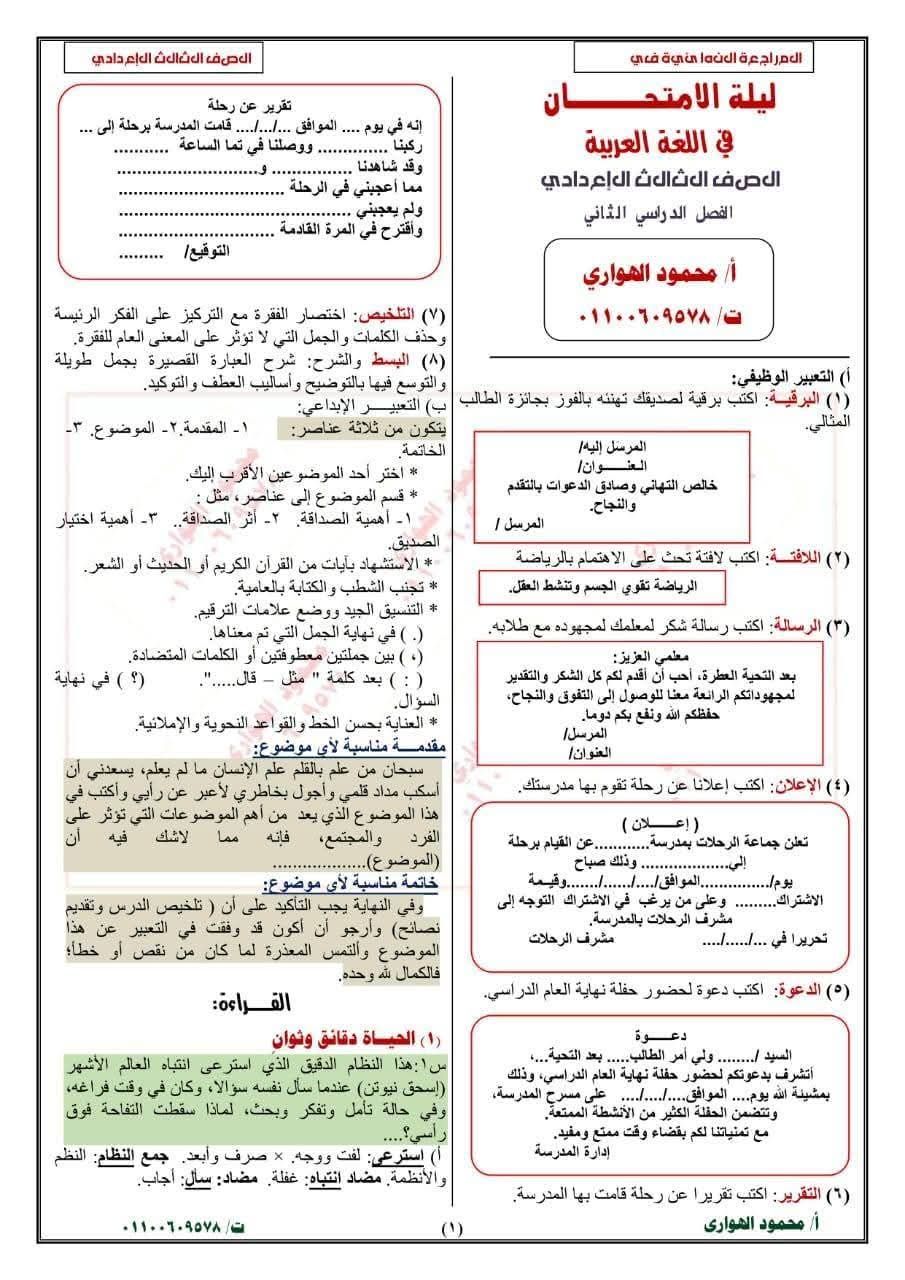 المراجعة النهائية في
الصف الثالث الإعدادي
ليلة الامتحــــــان
في اللغة العربية
الصف الثالث الإعدادي
الفصل الدراسي الثاني
أ/ محمود الهواري
ت/ ٠١١٠٠٦٠٩٥٧٨
أ) التعبير الوظيفي:
(١) البرقيــة: اكتب برقية لصديقك تهنئه بالفوز بجائزة الطالب
المثالي.
المرسَل إليه/
العنــــوان/
خالص التهاني وصادق الدعوات بالتقدم
والنجاح.
المرسل /
(٢) اللافتــــة: اكتب لافتة تحث على الاهتمام بالرياضة
الرياضة تقوي الجسم وتنشط العقل.
(٣) الرسالة: اكتب رسالة شكر لمعلمك لمجهوده مع طلابه.
معلمي العزيز:
بعد التحية العطرة، أحب أن أقدم لكم كل الشكر والتقدير
لمجهوداتكم الرائعة معنا للوصول إلى التفوق والنجاح،
حفظكم الله ونفع بكم دوما.
المرسل/
العنوان/
(٤) الإعلان: اكتب إعلانا عن رحلة تقوم بها مدرستك.
( إعـــــلان )
تعلن جماعة الرحلات بمدرسة............عن القيام برحلة
إلي.................. وذلك صباح
يوم/...............الموافق/..../....../.......وقيــمة
الاشتراك......... وعلى من يرغب في الاشتراك التوجه إلى
مشرف الرحلات بالمدرسة.
تحريرا في .../...../.... مشرف الرحلات
(٥) الدعوة: اكتب دعوة لحضور حفلة نهاية العام الدراسي.
دعـــوة
السيد /........ ولي أمر الطالب..... بعد التحية...،
أتشرف بدعوتكم لحضور حفلة نهاية العام الدراسي، وذلك
بمشيئة الله يوم....الموافق..../..../.... على مسرح المدرسة،
وتتضمن الحفلة الكثير من الأنشطة الممتعة.
مع تمنياتنا لكم بقضاء وقت ممتع ومفيد.
إدارة المدرسة
(٦) التقرير: اكتب تقريرا عن رحلة قامت بها المدرسة.
تقرير عن رحلة
إنه في يوم .... الموافق .../.../.... قامت المدرسة برحلة إلى ...
ركبنا .............. ووصلنا في تما الساعة ...........
وقد شاهدنا ................ و............................
مما أعجبني في الرحلة .................................
ولم يعجبني ..............................................
وأقترح في المرة القادمة ...............................
التوقيع/ .........
(٧) التلخيص: اختصار الفقرة مع التركيز على الفكر الرئيسة
وحذف الكلمات والجمل التي لا تؤثر على المعنى العام للفقرة.
(٨) البسط والشرح: شرح العبارة القصيرة بجمل طويلة
والتوسع فيها بالتوضيح وأساليب العطف والتوكيد.
ب) التعبيـــــر الإبداعي:
يتكون من ثلاثة عناصر: ١- المقدمة.٢- الموضوع. ٣-
الخاتمة.
* اختر أحد الموضوعين الأقرب إليك.
* قسم الموضوع إلى عناصر، مثل :
١- أهمية الصداقة. ٢- أثر الصداقة.. ٣- أهمية اختيار
الصديق.
* الاستشهاد بآيات من القرآن الكريم أو الحديث أو الشعر.
* تجنب الشطب والكتابة بالعامية.
* التنسيق الجيد ووضع علامات الترقيم.
(. ) في نهاية الجمل التي تم معناها.
(، ) بين جملتين معطوفتين أو الكلمات المتضادة.
( : ) بعد كلمة " مثل – قال.....". (؟ ) في نهاية
السؤال.
* العناية بحسن الخط والقواعد النحوية والإملائية.
مقدمـــة مناسبة لأي موضوع:
سبحان من علم بالقلم علم الإنسان ما لم يعلم، يسعدني أن
أسكب مداد قلمي وأجول بخاطري لأعبر عن رأيي وأكتب في
هذا الموضوع الذي يعد من أهم الموضوعات التي تؤثر على
الفرد والمجتمع، فإنه مما لاشك فيه أن
(الموضوع)...................
خاتمة مناسبة لأي موضوع:
وفي النهاية يجب التأكيد على أن ( تلخيص الدرس وتقديم
نصائح) وأرجو أن أكون قد وفقت في التعبير عن هذا
الموضوع وألتمس المعذرة لما كان من نقص أو خطأ؛
فالكمال لله وحده.
القــراءة:
(١) الحيــاة دقائق وثوانٍ
س١:هذا النظام الدقيق الذي استرعى انتباه العالم الأشهر
(إسحق نيوتن) عندما سأل نفسه سؤالا، وكان في وقت فراغه،
وفي حالة تأمل وتفكر وبحث، لماذا سقطت التفاحة فوق
رأسي؟....
أ) استرعى: لفت ووجه. × صرف وأبعد. جمع النظام: النظم
والأنظمة. مضاد انتباه: غفلة. مضاد: سأل: أجاب.
أ/ محمود الهوارى
(١)
ت/ ٠١١٠٠٦٠٩٥٧٨